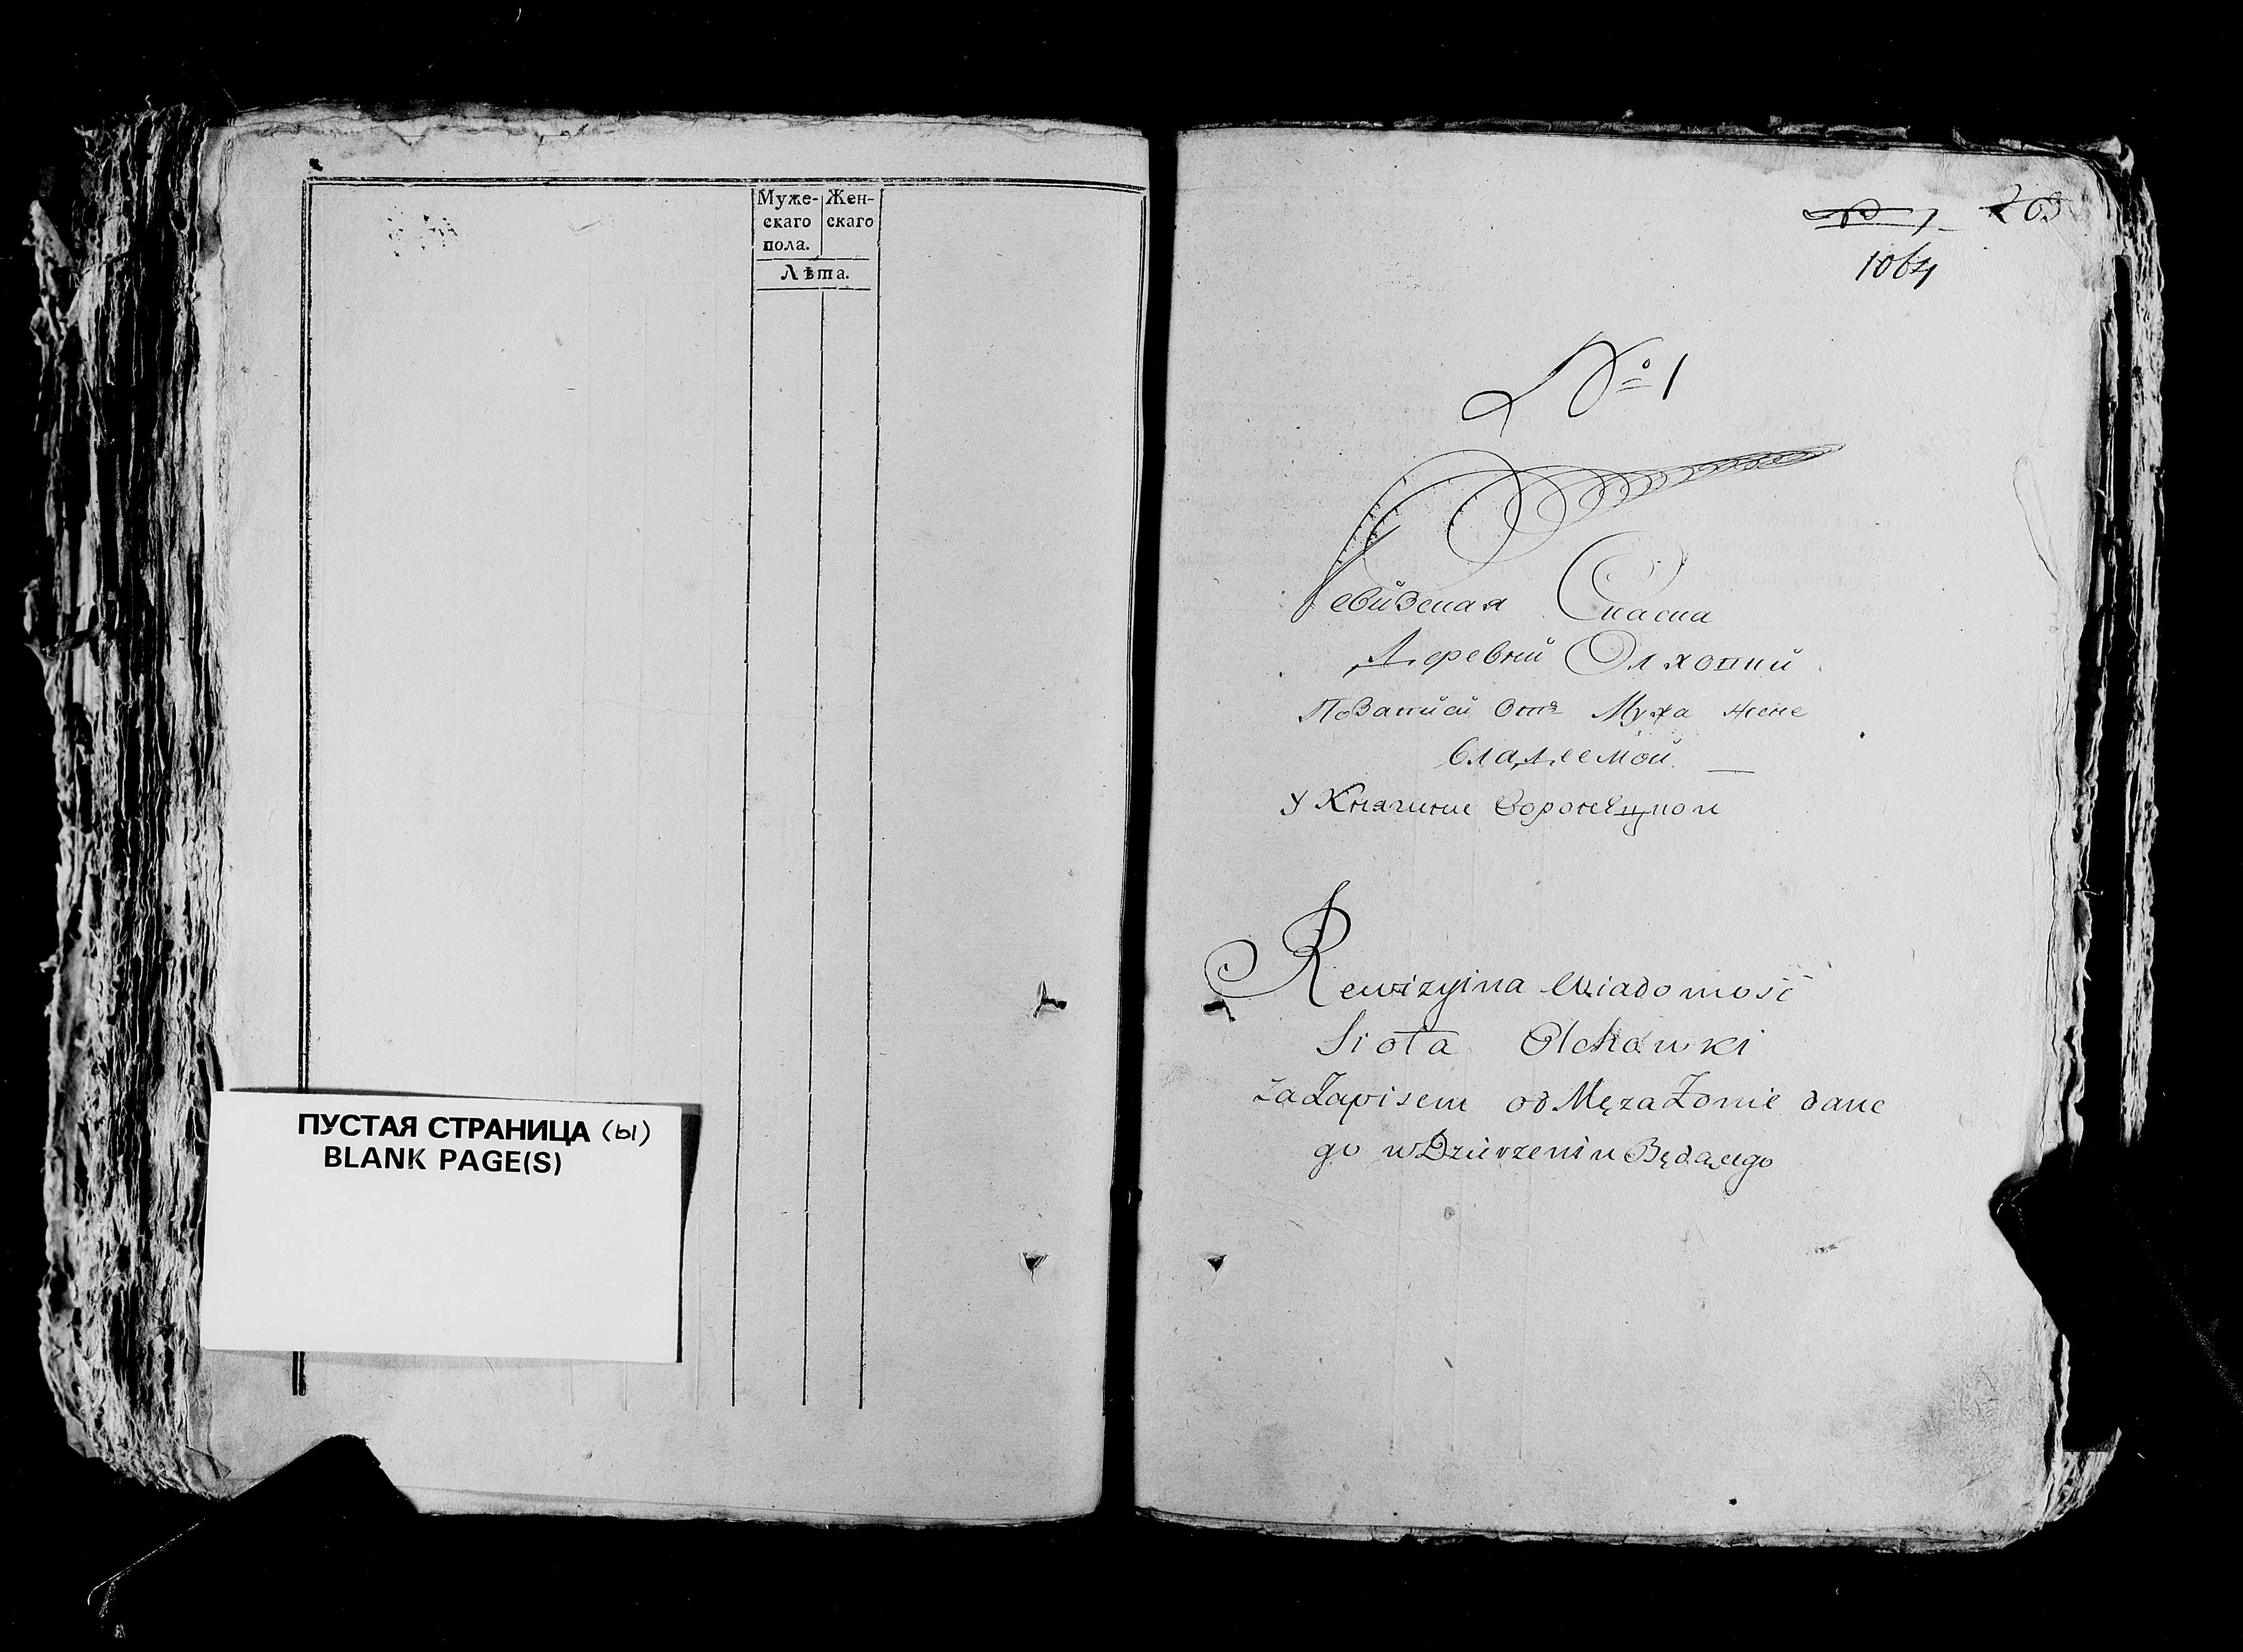 Муже- Жен-
скаго скаго
пола.
Лѣта.
ПУСТАЯ СТРАНИЦА (ы)
BLANK PAGE(S)
203
1064
№ 1
Ревизская Скаска
Деревни Олховки
По Записи Отъ Мужа жене
владеемой
У Княгине Воронецкой
Rewizyina Wiadomość
Sioła Olchowki
za Zapisem od Męza Zonie dane
go w Dzierzeniu Będącego